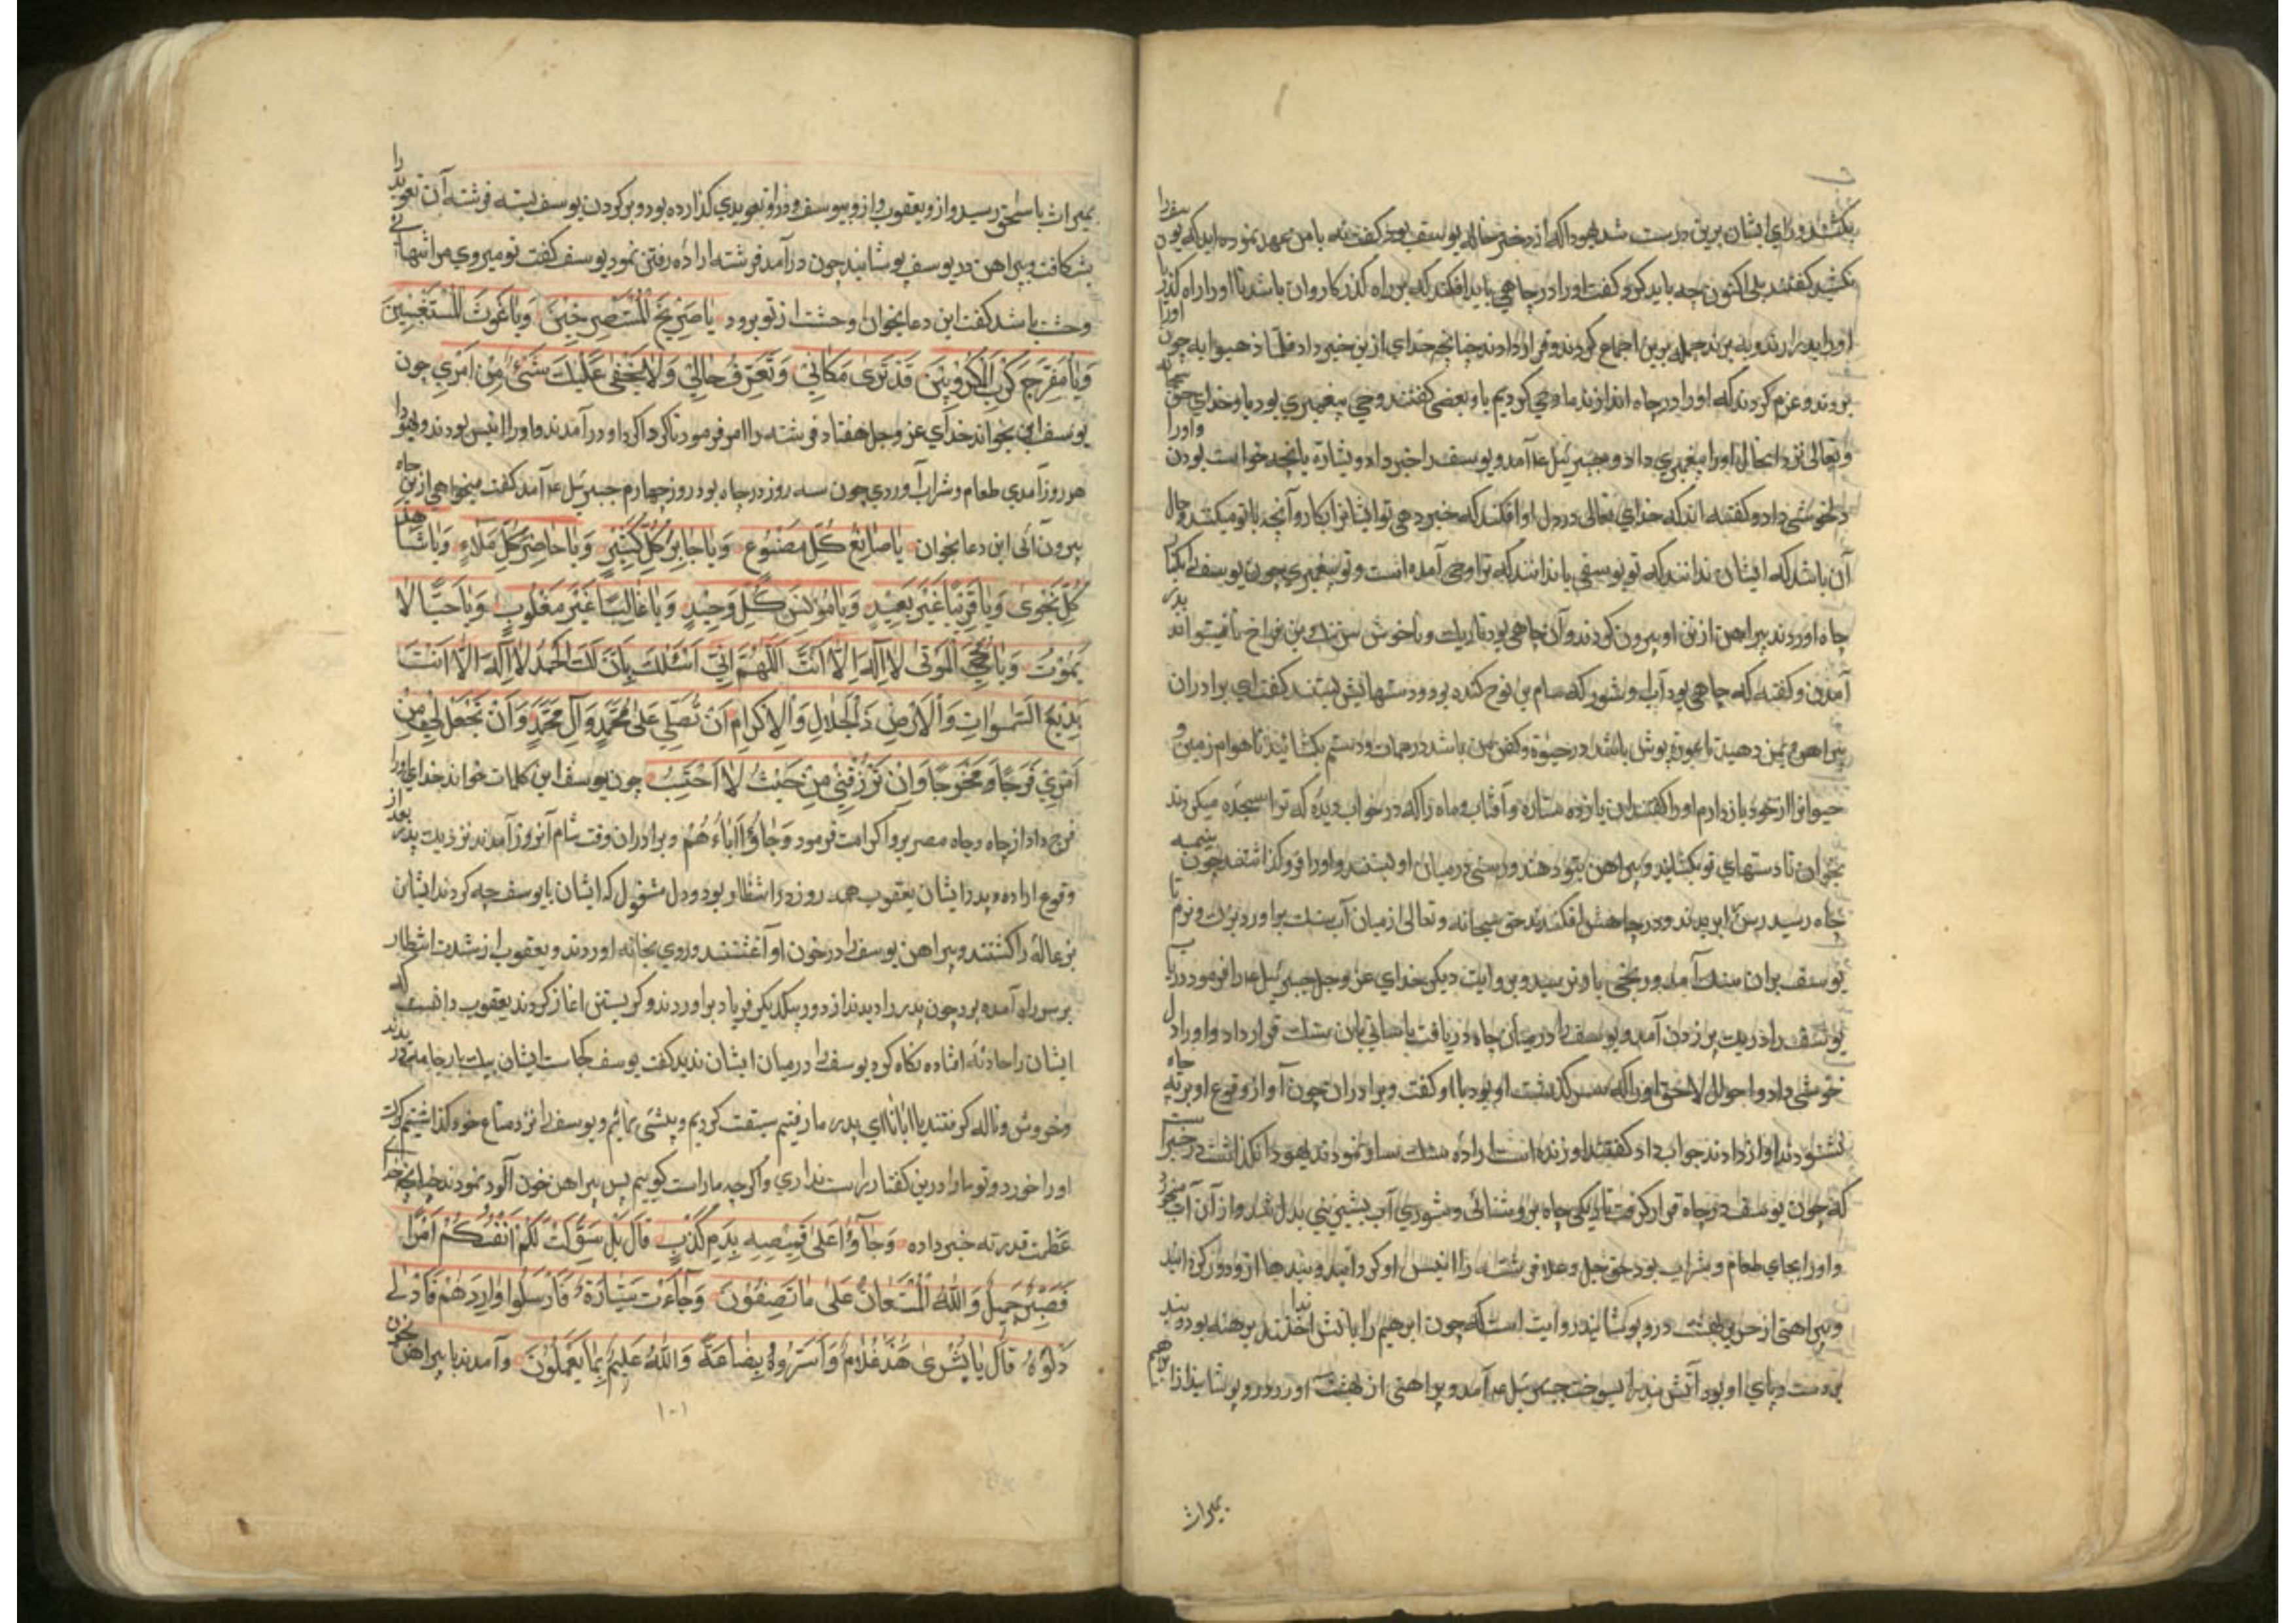 بکشند و رای ایشان برین درست شد یهودا که از دختر خاله یوسف بود گفت نه با من عهد نموده اید که یوسف را
نکشید گفتند بلی اکنون چه باید کرد گفت او را در چاهی باید افکند که بر راه گذر کاروان باشد تا او را راه گذر یا
او را بردارند و ببرند جمله برین اجماع کردند و قرار دادند چنانچه خدای ازین خبر داد فلما ذهبوا به چون او را
بردند و عزم کردند که او را در چاه اندازند ما وحی کردیم باو بعضی گفتند وحی پیغمبری بود باو خدای حق سبحانه
و تعالی نزد آنحال او را پیغمبری داد و جبرئیل ع آمد و یوسف را خبر داد و بشارة بآنچه خواست بودن و او را
دلخوشی داد و گفته اند که خدای تعالی در دل او افکند که خبر دهی تو ایشانرا بکار و آنچه با تو میکنند و حال
آن باشد که ایشان ندانند که تو یوسفی یا ندانند که ترا وحی آمده است و تو پیغمبری چون یوسف را بکنار
چاه اوردند پیراهن از تن او بیرون کردند و آن چاهی بود تاریک و ناخوش سر تنک بن فراخ تا نتواند بدر
آمدن و گفته که چاهی بود آب او شور که سام بن نوح کنده بود و دستهایش بستند گفت ای برادران
پیراهن بمن دهید تا عورة پوش باشد در حیوة و کفن من باشد در ممات و دستم بکشائید تا هوام زمین و
حیوانرا از خود باز دارم او را گفتند این یازده ستاره و آفتاب و ماه را که در خواب دیده که ترا سجده میکردند
بخوان تا دستهای تو بکشایند و پیراهن بتو دهند و رسنی در میان او بستند و او را فرو گذاشتند چون بنیمه
چاه رسید رسن ببریدند و در چاهش افکندند حق سبحانه و تعالی از میان آب سنک براورد بزرک و نرم تا
یوسف بران سنک آمد و رنجی باو نرسید و بروایت دیکر خدای عز و جل جبرئیل ع را فرمود دریاب
یوسف را در یک پر زدن آمد و یوسف را در میان چاه دریافت باسانی بان سنک قرار داد و او را دل
خوشی داد و احوال لاحق او را که سرگذشت او بود با او گفت و برادران چون آواز وقوع او بر ته چاه
نشنودند آواز دادند جواب داد گفتند او زنده است اراده سنک ساو نمودند یهودا نگذاشت در خبر است
که چون یوسف در چاه قرار گرفت تاریکی چاه بروشنائی و شوری آب بشیرینی بدل شد و از آن آب میخورد
و او را بجای طعام و شراب بود حق جل و علا فرشته را انیس او گردانید و بندها ازو دور گردانید
و پیراهنی از حریر بهشت درو پوشانید روایت است که چون ابرهیم را بآتش انداختند برهنه بود و بند
بر دست و پای او بود آتش بند را بسوخت جبرئیل ع آمد و پیراهنی از بهشت اورد و درو پوشانید از ابراهیم
بمیراث
بمیراث باسحق رسید و ازو بیعقوب و ازو بیوسف و در او تعویذی گذارده بود و بر گردن یوسف بسته فرشته آن تعویذ را
بشکافت و پیراهن در یوسف پوشانید چون درآمد فرشته اراده رفتن نمود یوسف گفت تو میروی مرا تنهائی
وحشت باشد گفت این دعا بخوان وحشت از تو برود یا صَرِیخَ الْمُسْتَصْرِخِینَ وَیا غَوْثَ الْمُسْتَغیثینَ
وَیا مُفَرِّجَ کَرْبِ الْمَکْرُوبینَ قَدْ تَری مَکانی وَتَعْرِفُ حالی وَلا یَخْفی عَلَیْکَ شَیْءٌ مِنْ اَمْری چون
یوسف این بخواند خدای عز و جل هفتاد فرشته را امر فرمود تا گرداگرد او در آمدند و او را انیس بودند و یهودا
هر روز آمدی طعام و شراب آوردی چون سه روز در چاه بود روز چهارم جبرئیل ع آمد گفت میخواهی ازین چاه
بیرون آئی این دعا بخوان یا صانِعَ کُلِّ مَصْنُوعٍ وَیا جابِرَ کُلِّ کَسیرٍ وَیا حاضِرَ کُلِّ مَلَاءٍ وَیا شاهِدَ
کُلِّ نَجْوی وَیا قَریبًا غَیْرَ بَعیدٍ وَیا مُونِسَ کُلِّ وَحیدٍ وَیا غالِبًا غَیْرَ مَغْلُوبٍ وَیا حَیًّا لا
یَمُوتُ وَیا مُحْیِیَ الْمَوْتی لا اِلهَ اِلّا اَنْتَ اَللّهُمَّ اِنّی اَسْئَلُکَ بِاَنَّ لَکَ الْحَمْدُ لا اِلهَ اِلّا اَنْتَ
بَدیعُ السَّمواتِ وَالْاَرْضِ ذَا الْجَلالِ وَالْاِکْرامِ اَنْ تُصَلِّیَ عَلی مُحَمَّدٍ وَآلِ مُحَمَّدٍ وَاَنْ تَجْعَلَ لی مِنْ
اَمْری فَرَجًا وَ مَخْرَجًا وَاَنْ تَرْزُقَنی مِنْ حَیْثُ لا اَحْتَسِبُ چون یوسف این کلمات خواند خدای او را
فرج داد از چاه و جاه مصر برو اکرامت فرمود وَجاؤُا اَباءَهُمْ و برادران وقت شام آنروز آمدند نزدیک پدر بعد از
وقوع اراده و پدر ایشان یعقوب همه روز در انتظار بود و دل مشغول که ایشان با یوسف چه کردند ایشان
بزغاله را کشتند و پیراهن یوسف را در خون او آغشتند و روی بخانه اوردند و یعقوب از شدت انتظار
بر سر راه آمده بود چون پدر را دیدند از دور بیکدیکر فریاد براوردند و گریستن اغاز کردند یعقوب دانست که
ایشان را حادثه افتاده نگاه کرد یوسف را در میان ایشان ندید گفت یوسف کجاست ایشان بیک بار جامه بدریدند
و خروش و ناله گرفتند یا ابانا ای پدر ما رفتیم سبقت کردیم و پیشی نمائیم و یوسف را نزد متاع خود گذاشتیم گرک
او را خورد و تو ما را درین گفتار راست نداری و اگر چه ما راست گوییم پس پیراهن خون آلود نمودند چنانچه خدای
عظمت قدرته خبر داده وَجآؤُا عَلی قَمیصِهِ بِدَمٍ کَذِبٍ قالَ بَلْ سَوَّلَتْ لَکُمْ اَنْفُسُکُمْ اَمْرًا
فَصَبْرٌ جَمیلٌ وَاللّهُ الْمُسْتَعانُ عَلی ما تَصِفُونَ وَجآءَتْ سَیّارَةٌ فَاَرْسَلُوا وارِدَهُمْ فَاَدْلی
دَلْوَهُ قالَ یا بُشْری هذا غُلامٌ وَاَسَرُّوهُ بِضاعَةً وَاللّهُ عَلیمٌ بِما یَعْمَلُونَ و آمدند با پیراهن بخون
۱۰۱